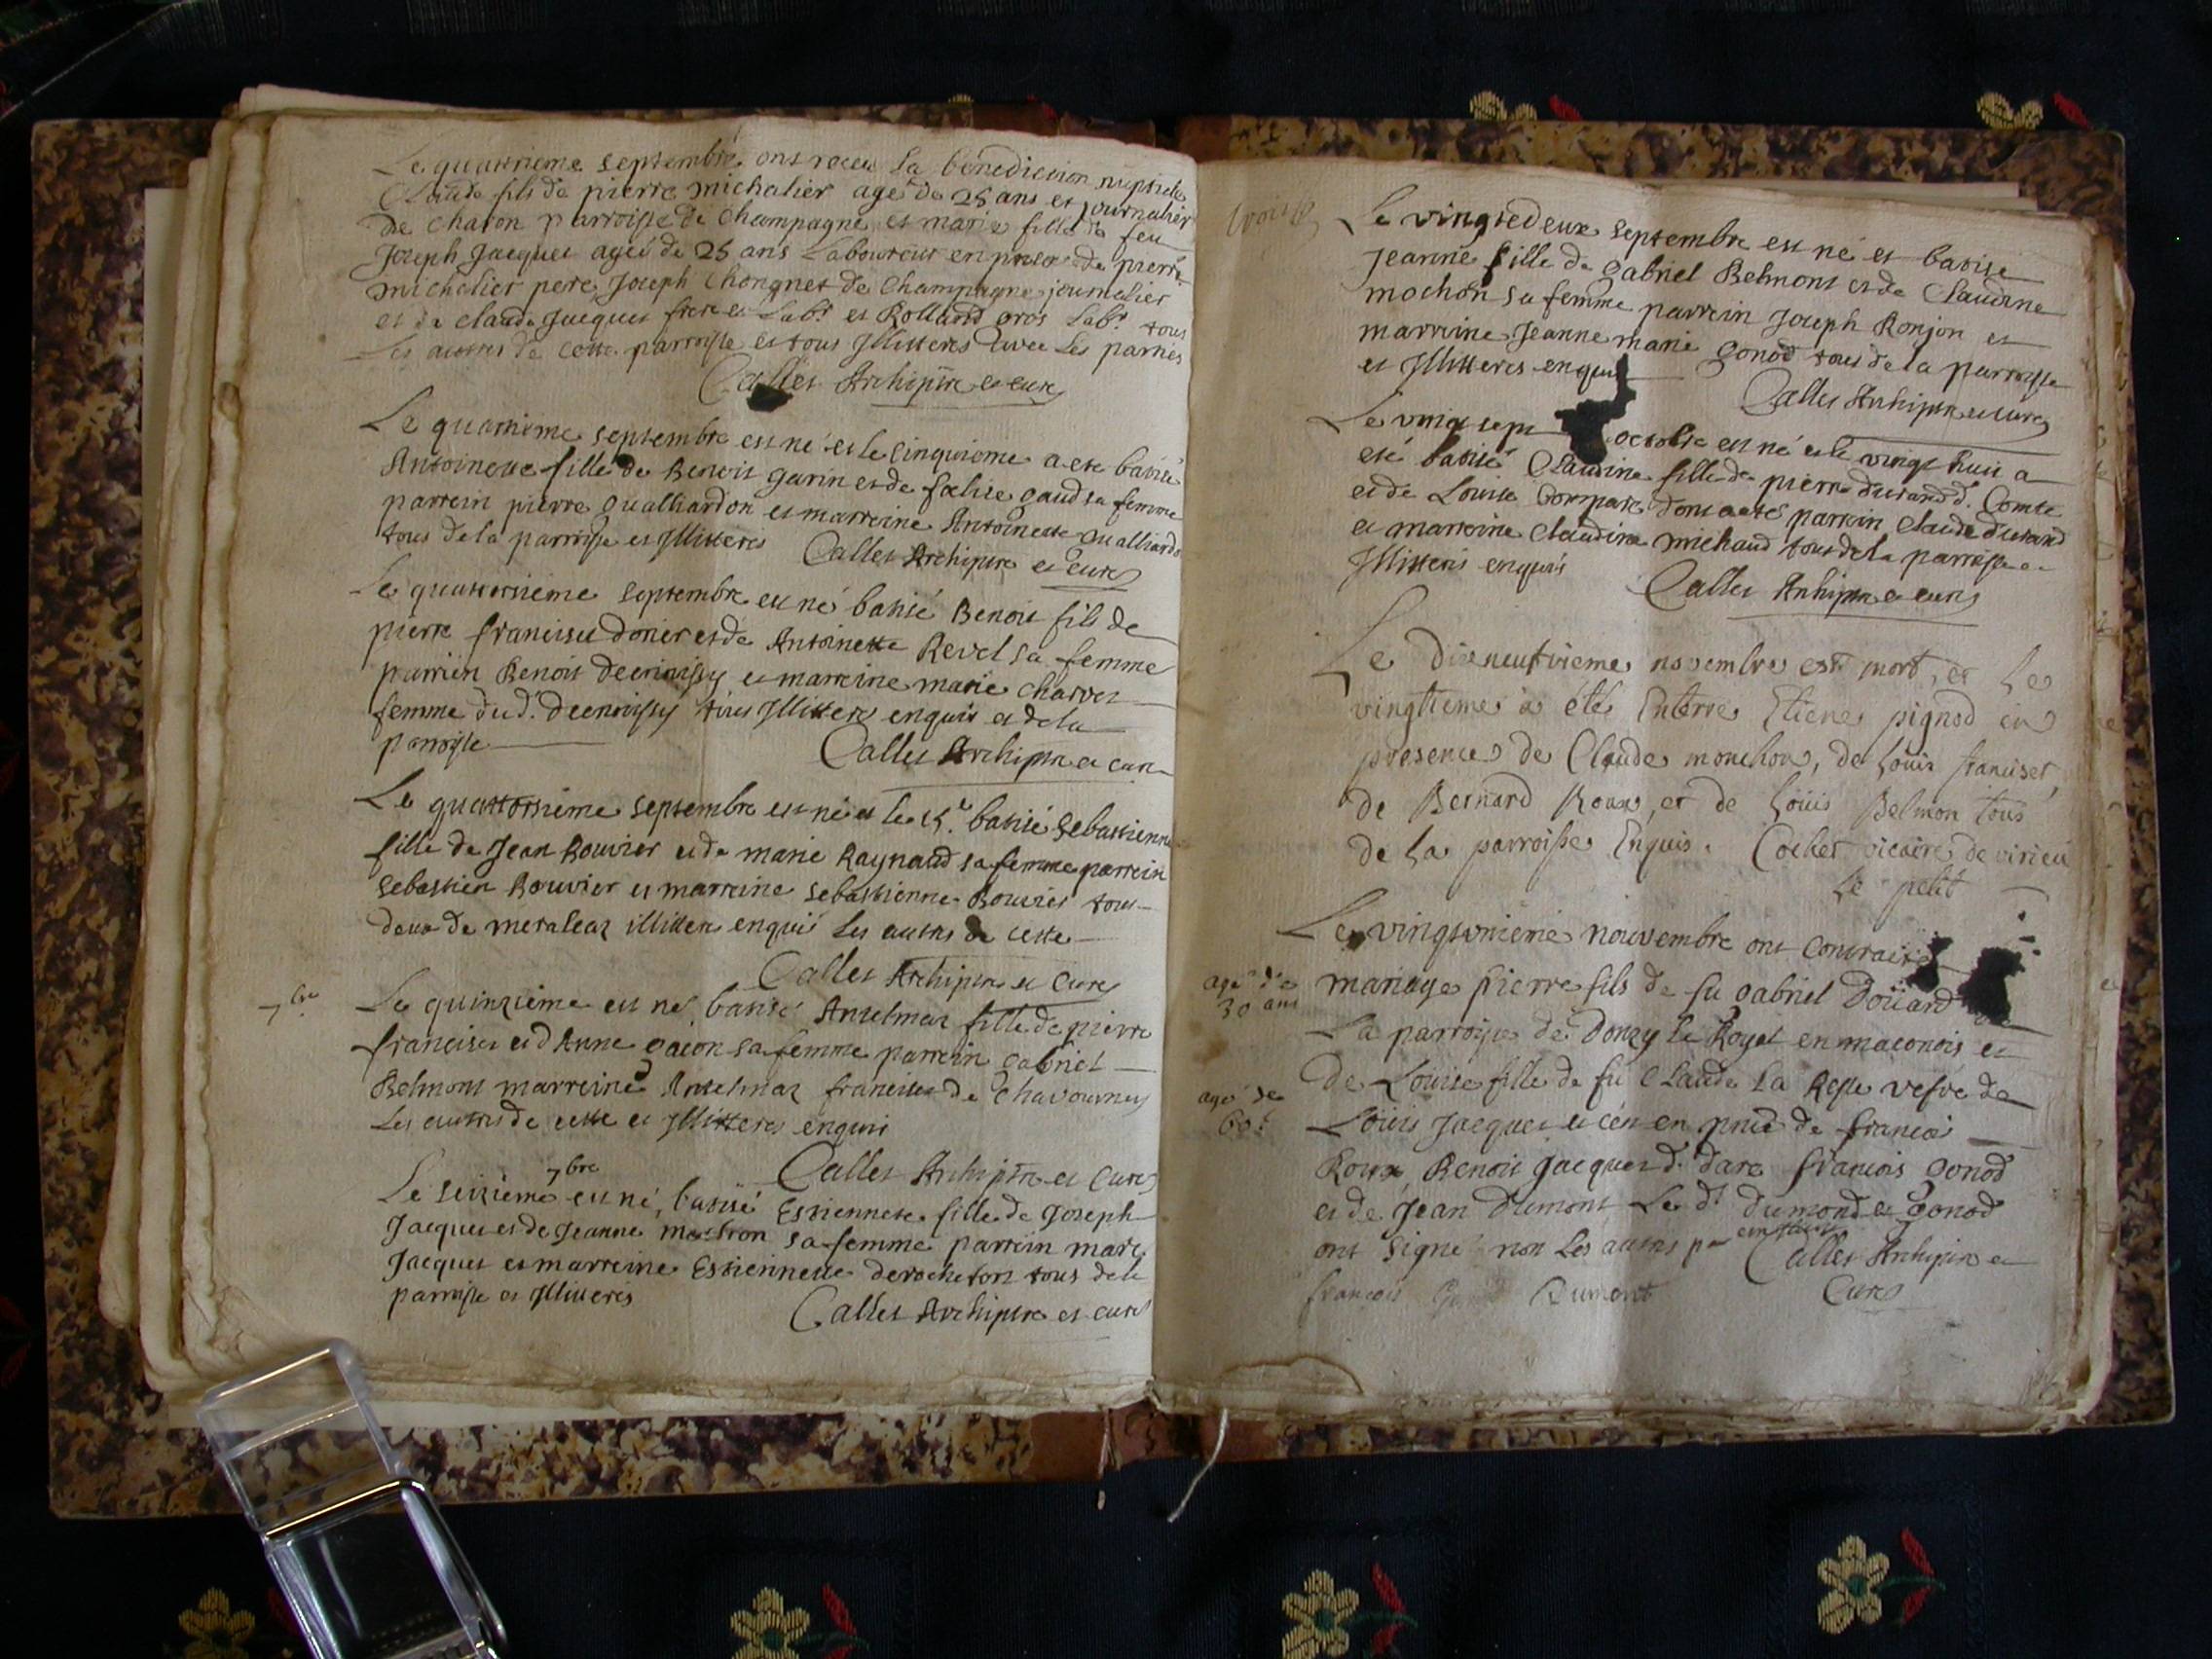 Le quatrieme septembre ont receu la benediction nuptiale
Claude fils de pierre michalier agé de 25 ans et journalier
de charon parroisse de Champagne et marie fille de feu
Joseph Jacquet ageé de 25 ans Laboureur en pnce de pierre
michalier pere Joseph Chongnet de Champagne journalier
et de claude Jacquet frere et Labr et Rolland gros Labr tous
Les autres de cette parroisse et tous Jllitteres avec Les parties
Callet Archiptre et curé
Le quatrieme septembre est né et le cinquieme a esté batisé
Antoinette fille de Benoit garin et de foelise gaud sa femme
parrein pierre gualliardon et marreine Antoinette gualliardo
tous de la parroisse et Jllitteres Callet Archiptre et curé
Le quatorsieme septembre est né batisé Benoit fils de
pierre franciset donier et de Antoinette Revel sa femme
parrien Benoit decroissy et marreine marie charvet
femme du d. decroissy tous Jllitteres enquis et de la
parroisse Callet Archiptre et curé
Le quattorsieme septembre est né et le 15e batisé Sebastienne
fille de Jean Bouvier et de marie Raynaud sa femme parrein
Sebastien Bouvier et marreine Sebastienne Bouvier tous
deux de meraleaz illitteres enquis Les autres de cette
Callet Archiptre et Curé
7bre Le quinzieme est né batisé Antelmaz fille de pierre
franciset et d Anne gacon sa femme parrein gabriel
Belmont marreine Antelmaz franciset de Chavournay
Les autres de cette et Jllitteres enquis
Callet Archiptre et Curé
7bre
Le seizieme est né, batisé Estiennete fille de Joseph
Jacquet et de Jeanne mochon sa femme parrein marc
Jacquet et marreine Estiennette derocheton tous de la
parroisse et Jllitteres
Callet Archiptre et curé
Le vingtedeux septembre est né et batisé
Jeanne fille de gabriel Belmont et de Claudine
mochon sa femme parrein Joseph Ronjon et
marreine Jeanne marie gonod tous de la parroisse
et Jllitteres enquis
Callet Archiptre et curé
Le vingt sept octobre est né et le vingt huit a
esté batisé Claudine fille de pierre durand d. Comte
et de Louise Compare dont acte parrein Claude durand
et marreine Claudine michaud tous de la parroisse et
Jllitteris enquis
Callet Archiptre et curé
Le dixneufvieme novembre est mort, et Le
vingtieme à été Enterré Etiene pignod en
presence de Claude mouchon, de Loüis franciset,
de Bernard Roux, et de Loüis Belmon tous
de La parroisse Enquis. Cochet vicaire de virieu
Le petit
Le vingtunieme nouvembre ont contraité
agé de
30 ans
mariage pierre fils de fu gabriel Doüard de
La parroisse de Donzy le Royal en maconois et
De Louise fille de fu Claude La Resse vefve de
agé de
60
Loüis Jacquet et cés en pnce de francois
Roux, Benoit Jacquet d. darc francois gonod
et de Jean Dumont Le dt dumond et gonod
ont signé non Les autres
Callet Archiptre et
Curé
francois Dumont